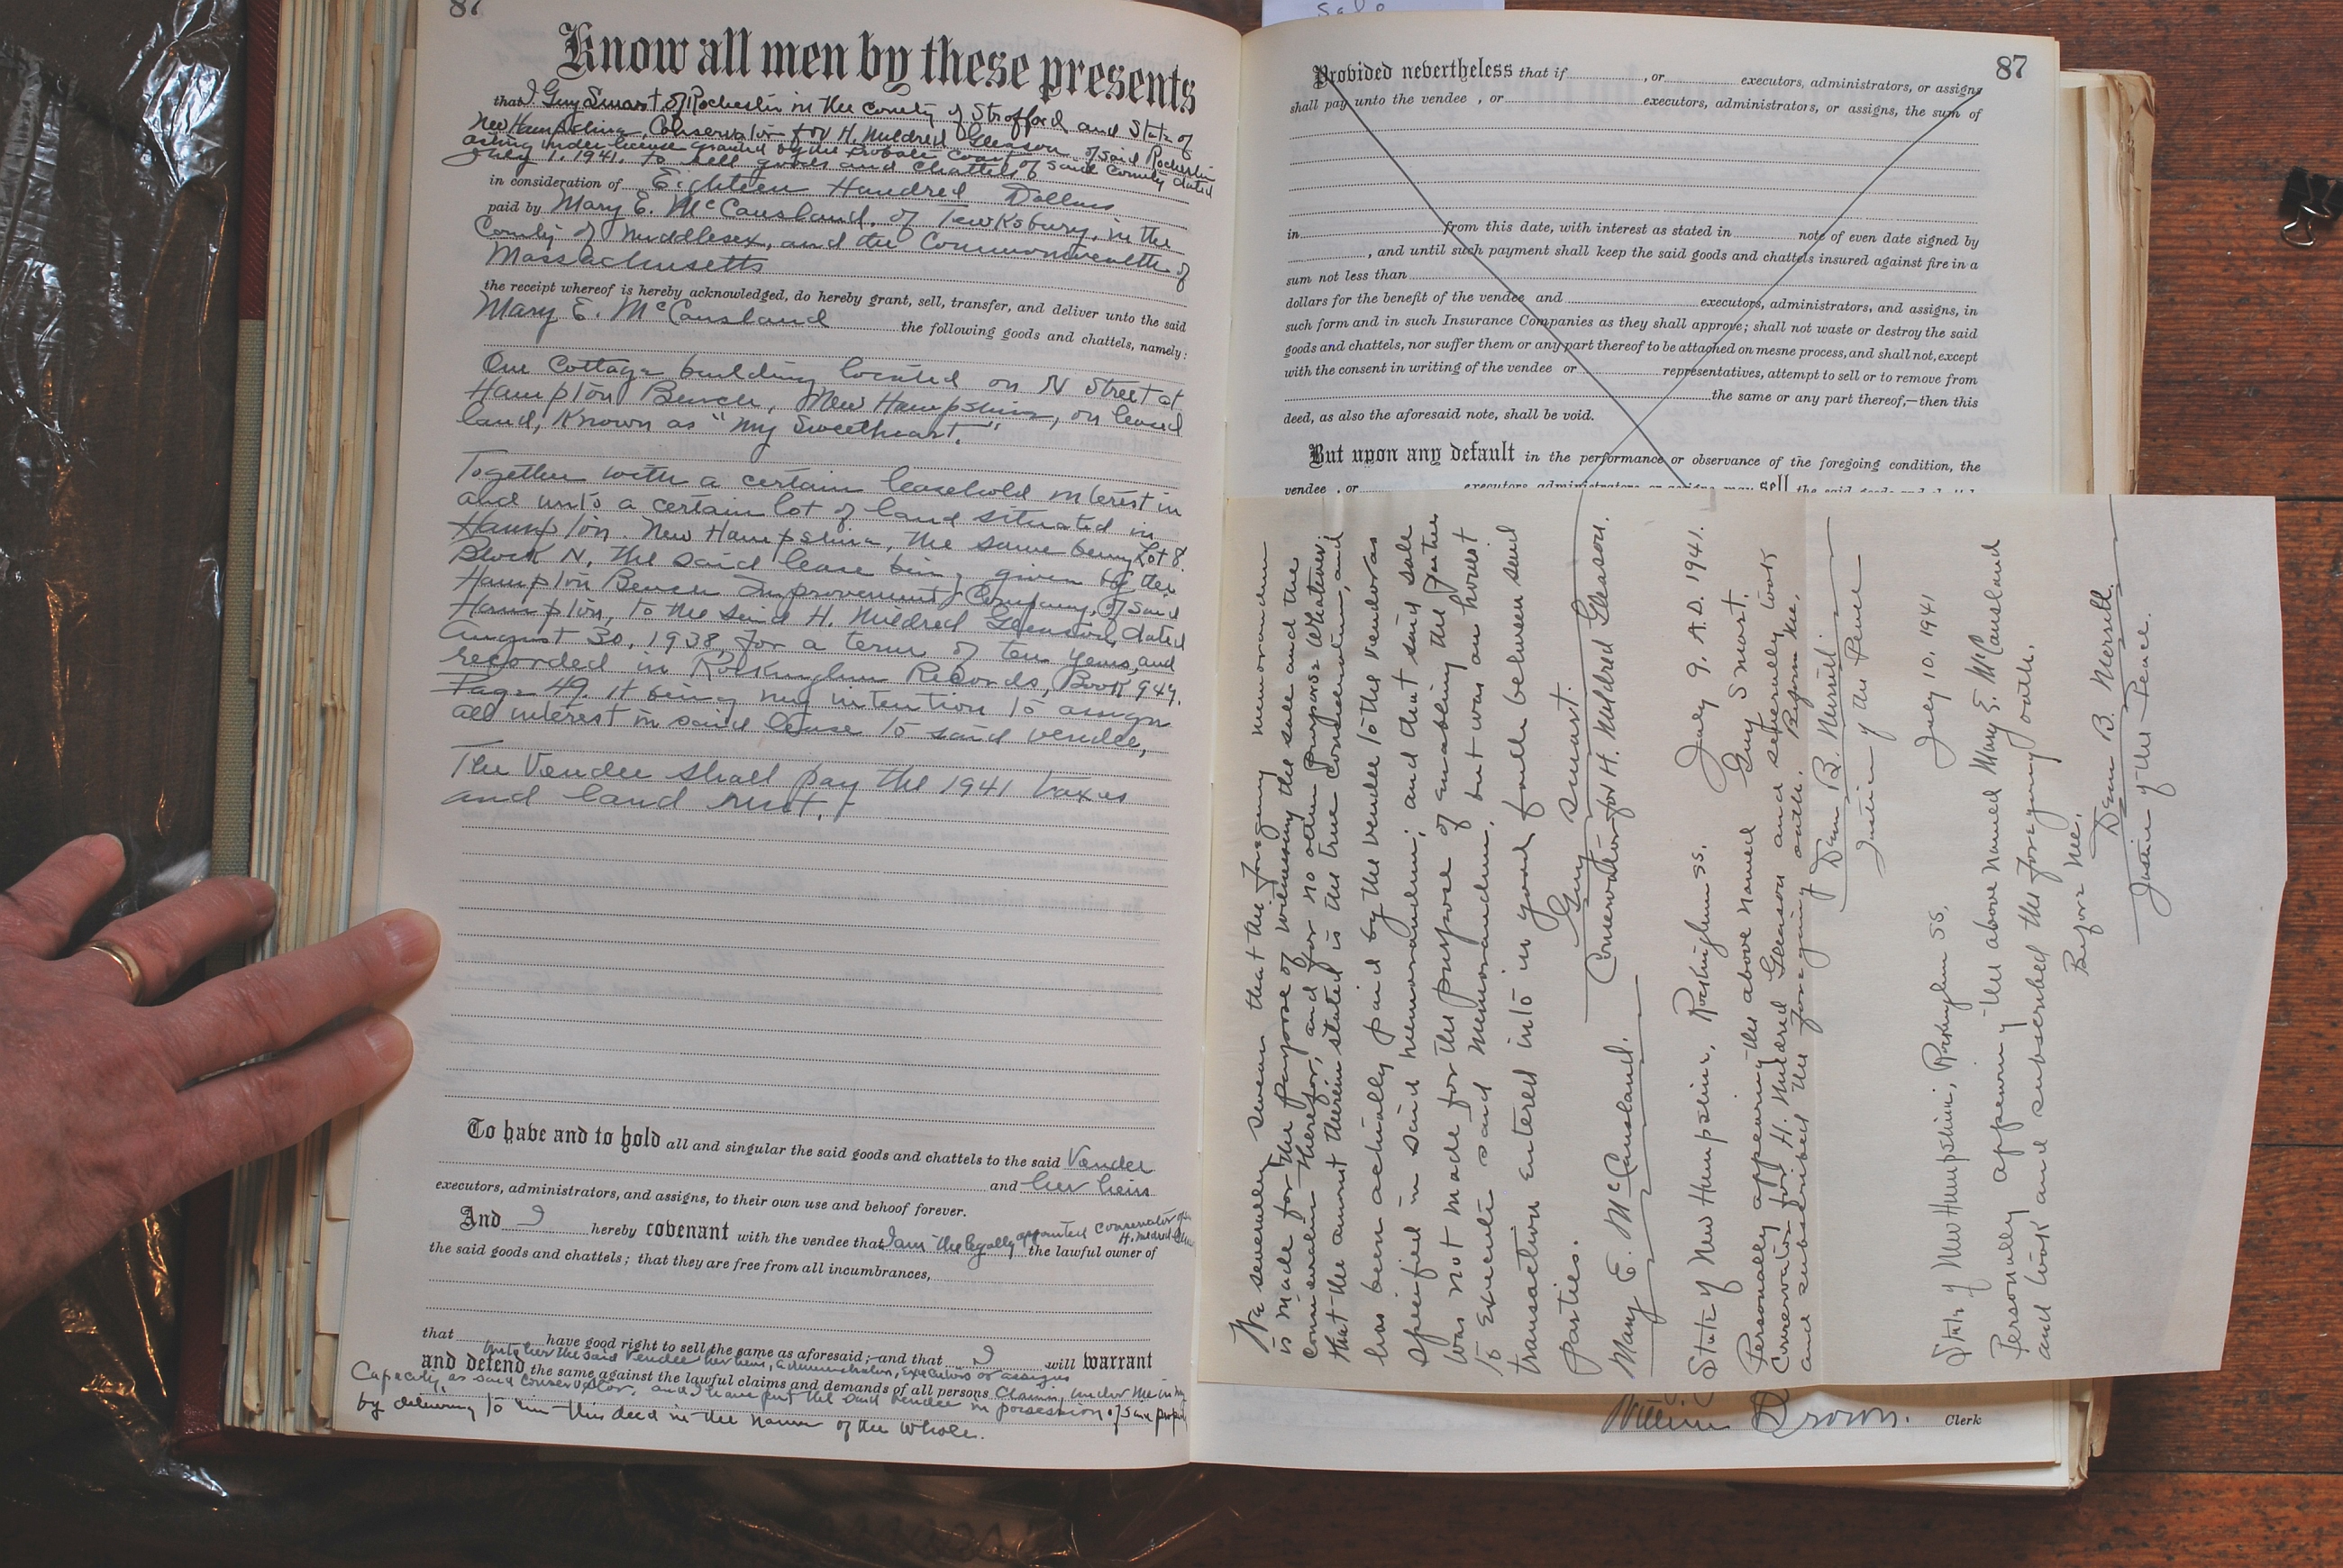 87
Know all men by these presents
that I Guy Smart of Rochester in the County of Strafford and State of
New Hampshire, Conservator for H. Mildred Gleason of said Rochester
acting under license granted by the Probate Court of said County dated
July 1, 1941, to sell goods and chattels
in consideration of Eighteen Hundred Dollars
paid by Mary E. McCausland, of Tewksbury, in the
County of Middlesex, and the Commonwealth of
Massachusetts
the receipt whereof is hereby acknowledged, do hereby grant, sell, transfer, and deliver unto the said
Mary E. McCausland the following goods and chattels, namely:
One Cottage building located on N Street at
Hampton Beach, New Hampshire, on leased
land, Known as "My Sweetheart."
Together with a certain leasehold interest in
and unto a certain lot of land situated in
Hampton, New Hampshire, the same being Lot 8.
Block N, the said lease being given by the
Hampton Beach Improvement Company, of said
Hampton, to the said H. Mildred Gleason, dated
August 30, 1938, for a term of ten years, and
recorded in Rockingham Records, Book 944,
Page 49. it being my intention to assign
all interest in said lease to said vendee,
The Vendee shall pay the 1941 taxes
and land rent.
To have and to hold all and singular the said goods and chattels to the said Vendee
and her heirs
executors, administrators, and assigns, to their own use and behoof forever.
And I hereby covenant with the vendee that I am the legally appointed conservator of H. Mildred the lawful owner of
the said goods and chattels; that they are free from all incumbrances,
that have good right to sell the same as aforesaid; and that I will warrant
unto her the said Vendee her heirs, administrators, executors or assigns
and defend the same against the lawful claims and demands of all persons claiming under me in my
Capacity as said conservator, and I have put the said vendee in possession of said property
by delivering to him this deed in the name of the whole.
sale
87
Provided nevertheless that if , or executors, administrators, or assigns
shall pay unto the vendee , or executors, administrators, or assigns, the sum of
in from this date, with interest as stated in note of even date signed by
, and until such payment shall keep the said goods and chattels insured against fire in a
sum not less than
dollars for the benefit of the vendee and executors, administrators, and assigns, in
such form and in such Insurance Companies as they shall approve; shall not waste or destroy the said
goods and chattels, nor suffer them or any part thereof to be attached on mesne process, and shall not, except
with the consent in writing of the vendee or representatives, attempt to sell or to remove from
the same or any part thereof,—then this
deed, as also the aforesaid note, shall be void.
But upon any default in the performance or observance of the foregoing condition, the
vendee , or executors, administrators or assigns may sell the said goods and chattels
We severally swear that the foregoing memorandum
is made for the purpose of witnessing the sale and the
consideration therefor, and for no other purpose whatever:
that the amount therein stated is the true consideration, and
has been actually paid by the vendee to the vendor as
specified in said memorandum; and that said sale
was not made for the purpose of enabling the parties
to execute said memorandum, but was an honest
transaction entered into in good faith between said
parties. Guy Smart.
Mary E. McCausland. Conservator for H. Mildred Gleason.
State of New Hampshire, Rockingham ss. July 9, A.D. 1941.
Personally appearing the above named Guy Smart,
Conservator for H. Mildred Gleason and severally took
and subscribed the foregoing oath. Before me,
Dean B. Merrill
Justice of the Peace
State of New Hampshire, Rockingham ss. July 10, 1941
Personally appearing the above named Mary E. McCausland
and took and subscribed the foregoing oath.
Before me,
Dean B. Merrill.
Justice of the Peace.
William Brown. Clerk